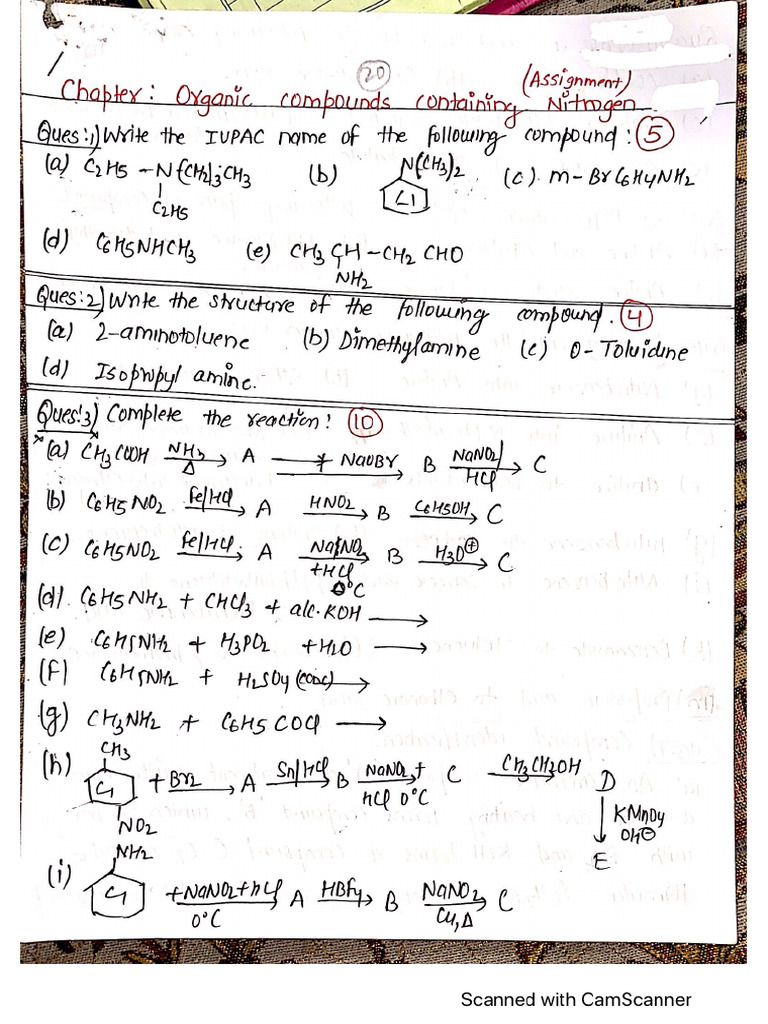 20
(Assignment)
Chapter: Organic compounds containing Nitrogen
Ques:1) Write the IUPAC name of the following compound: 5
(a) C2H5 -N{CH2}3CH3 (b) N(CH3)2 (c). m-BrC6H4NH2
C2H5
(d) C6H5NHCH3 (e) CH3 CH -CH2 CHO
NH2
Ques:2) Write the structure of the following compound. 4
(a) 2-aminotoluene (b) Dimethylamine (c) O-Toluidine
(d) Isopropyl amine.
Ques:3) Complete the reaction: 10
(a) CH3COOH NH3 Δ A NaOBr B NaNO2/ HCl C
(b) C6H5NO2 Fe/HCl A HNO2 B C6H5OH C
(c) C6H5NO2 Fe/HCl A NaNO2 +HCl 0°C B H3O⊕ C
(d). C6H5NH2 + CHCl3 + alc.KOH →
(e) C6H5NH2 + H3PO2 +H2O →
(f) C6H5NH2 + H2SO4 (conc) →
(g) CH3NH2 + C6H5COCl →
CH3
(h) + Br2 A Sn/HCl B NaNO2+ HCl 0°C C CH3CH2OH D
NO2
KMnO4
OH⊖
E
NH2
(i) +NaNO2+HCl 0°C A HBF4 B NaNO2 Cu,Δ C
Scanned with CamScanner